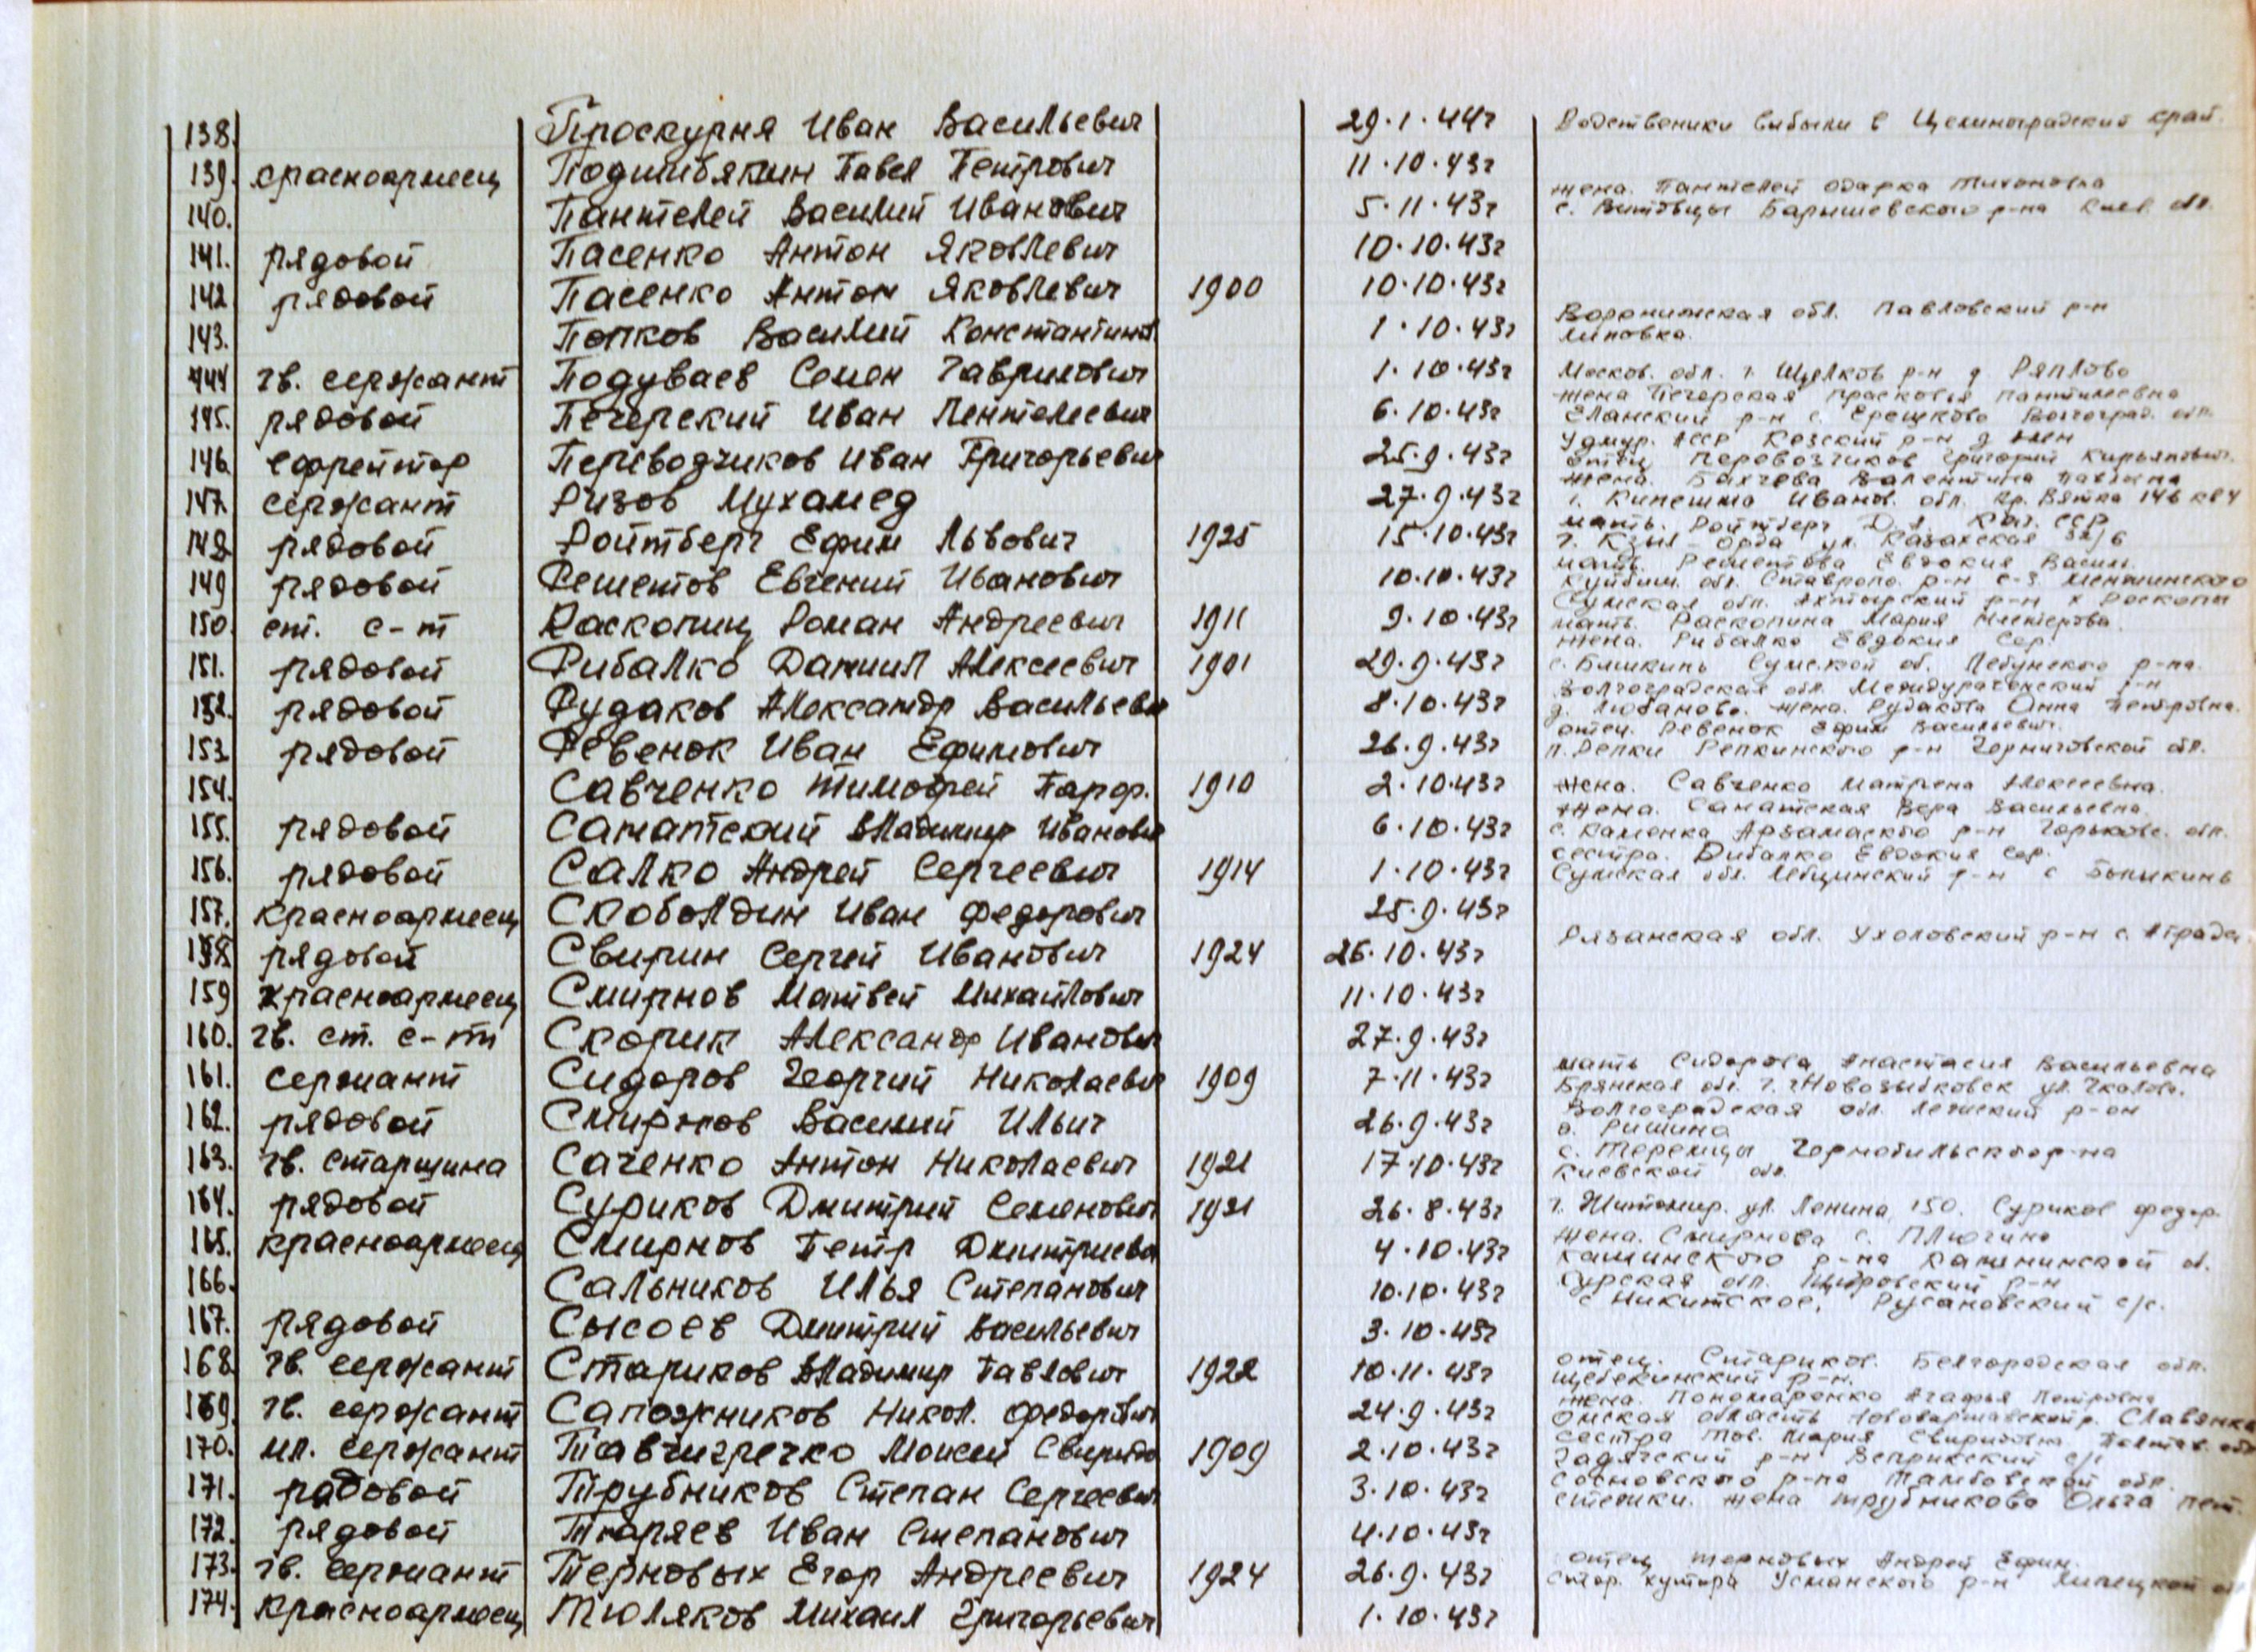 138. Проскурня Иван Васильевич 29.1.44г Родственики выбыли в Целиноградский край.
139. красноармеец Подшибякин Павел Петрович 11.10.43г
жена. Пантелей Одарка Тихоновна
140. Пантелей Василий Иванович 5.11.43г с. Витовцы Барышевского р-на Киев. обл.
141. рядовой Пасенко Антон Яковлевич 10.10.43г
142 рядовой Пасенко Антон Яковлевич 1900 10.10.43г
Воронижская обл. Павловский р-н
143. Попков Василий Константинов 1.10.43г Липовка.
144 гв. сержант Подуваев Семен Гаврилович 1.10.43г Москов. обл. г. Щелков р-н д. Ряплово
жена Печерская Прасковья Пантилеевна
145. рядовой Печерский Иван Пентелеевич 6.10.43г Еланский р-н с. Ерешково Волгоград. обл.
Удмур. АССР Кезский р-н д.
146. ефрейтор Переводчиков Иван Григорьевич 25.9.43г отец Перевозчиков Григорий Кирьянович.
жена. Бахчева Валентина Павловна
147. сержант Ризов Мухамед 27.9.43г г. Кинешма Иванов. обл. Кр. Ветка 146 кв 4
мать. Ройтберг Д. А. Каз. ССР
148. рядовой Ройтберг Ефим Львович 1925 15.10.43г г. Кзыл-Орда ул. Казахская
мать. Решетова Евдокия Василь.
149 рядовой Решетов Евгений Иванович 10.10.43г Куйбыш. обл. Ставропо. р-н с-з. Менжинского
Сумская обл. Ахтырский р-н х Роскопы
150. ст. с-т Раскопиц Роман Андреевич 1911 9.10.43г мать. Раскопина Мария Нестерова.
жена. Рибалко Евдокия Сер.
151. рядовой Рибалко Даниил Алексеевич 1901 29.9.43г с. Бишкинь Сумской об. Лебунского р-на.
Волгоградская обл. Междуреченский р-н
152. рядовой Рудаков Александр Васильеви 8.10.43г д. Любаново. жена. Рудакова Анна Петровна.
отец. Ревенок Ефим Васильевич.
153 рядовой Ревенок Иван Ефимович 26.9.43г п. Репки Репкинского р-н Черниговской обл.
154. Савченко Тимофей Парф. 1910 2.10.43г жена. Савченко Матрена Алексеевна.
жена. Саматская Вера Васильевна.
155. рядовой Саматский Владимир Иванович 6.10.43г с. Каменка Арзамаского р-н Горьковс. обл.
сестра. Рибалко Евдокия Сер.
156. рядовой Салко Андрей Сергеевич 1914 1.10.43г Сумская обл. Лебцинский р-н с
157. красноармеец Скоболдин Иван Федорович 25.9.43г
158. рядовой Свирин Сергей Иванович 1924 26.10.43г Рязанская обл. Ухоловский р-н с.
159 красноармеец Смирнов Матвей Михайлович 11.10.43г
160. гв. ст. с-т Скорик Александр Иванович 27.9.43г
мать Сидорова Анастасия Васильевна
161. сержант Сидоров Георгий Николаевич 1909 7.11.43г Брянская обл. г. Новозыбковск ул. Чкалова.
Волгоградская обл. Лежский р-он
162. рядовой Смирнов Василий Ильич 26.9.43г д. Ришина
с. Теремцы Чернобильского р-на
163. гв. старшина Саченко Антон Николаевич 1921 17.10.43г Киевской обл.
164. рядовой Суриков Дмитрий Семенович 1921 26.8.43г г. Житомир. ул. Ленина 150. Суриков Федор.
жена. Смирнова с. Плючино
165. красноармеец Смирнов Петр Дмитриеви 4.10.43г Кашинского р-на Калининской об.
Курская обл. Щигровский р-н
166. Сальников Илья Степанович 10.10.43г с Никитское, Русановский с/с.
167. рядовой Сысоев Дмитрий Васильевич 3.10.43г
отец. Стариков. Белгородская обл.
168. гв. сержант Стариков Владимир Павлович 1922 10.11.43г Щебекинский р-н.
жена. Пономаренко Агафья Петровна
169. гв. сержант Сапожников Никол. Федорович 24.9.43г Омская область Нововаршавский р. Славянка
сестра Тов. Мария Свиридовна Полтав. обл
170. мл. сержант Тавчигречко Моисей Свиридо 1909 2.10.43г Гадячский р-н Веприкский с/с
Сосновского р-на Тамбовской обл.
171. рядовой Трубников Степан Сергеевич 3.10.43г Стежки. жена Трубникова Ольга Пет.
172. рядовой Тюряев Иван Степанович 4.10.43г
отец Терновых Андрей Ефим.
173. гв. сержант Терновых Егор Андреевич 1924 26.9.43г Стор. хутора Усманского р-н Липецкой об
174. красноармеец Тюляков Михаил Григорьевич 1.10.43г